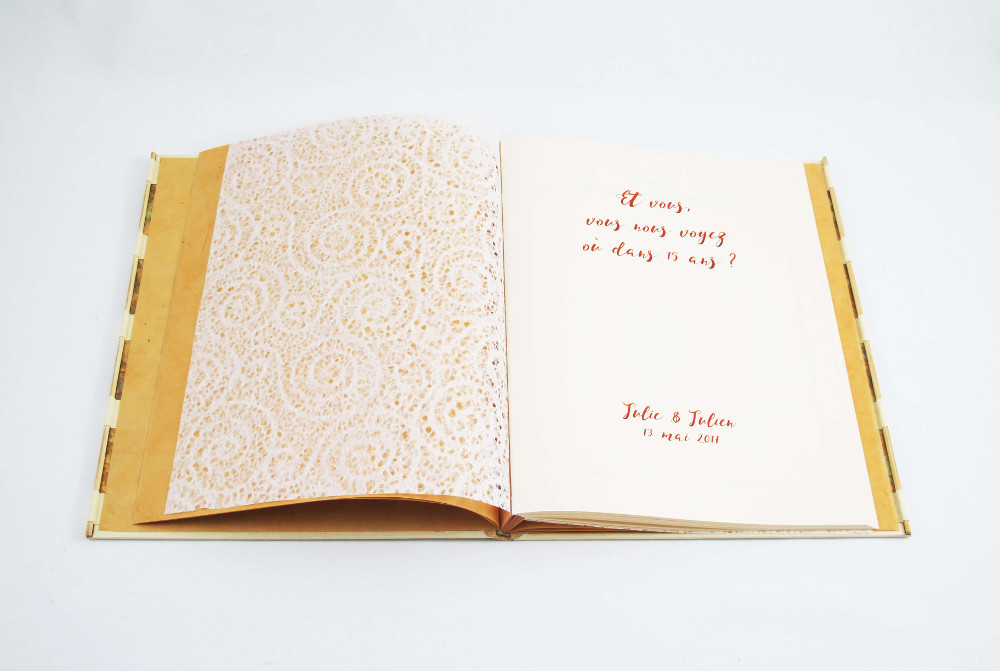 Et vous,
vous nous voyez
où dans 15 ans ?
Julie & Julien
13 mai 2017